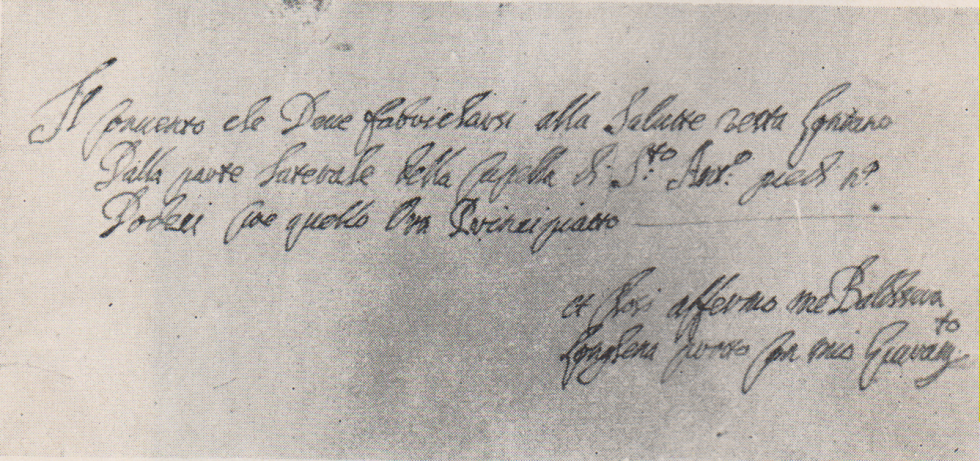 Il Conuento che Deue fabricharsi alla Salutte resta Lontano
Dalla parte Laterale della Capella di S.to Ant.o piedi n.o
Dodeci Coe quello Ora Principiatto
et Cosi affermo me Baldissera
Longhena Proto Con mio Giuram.to